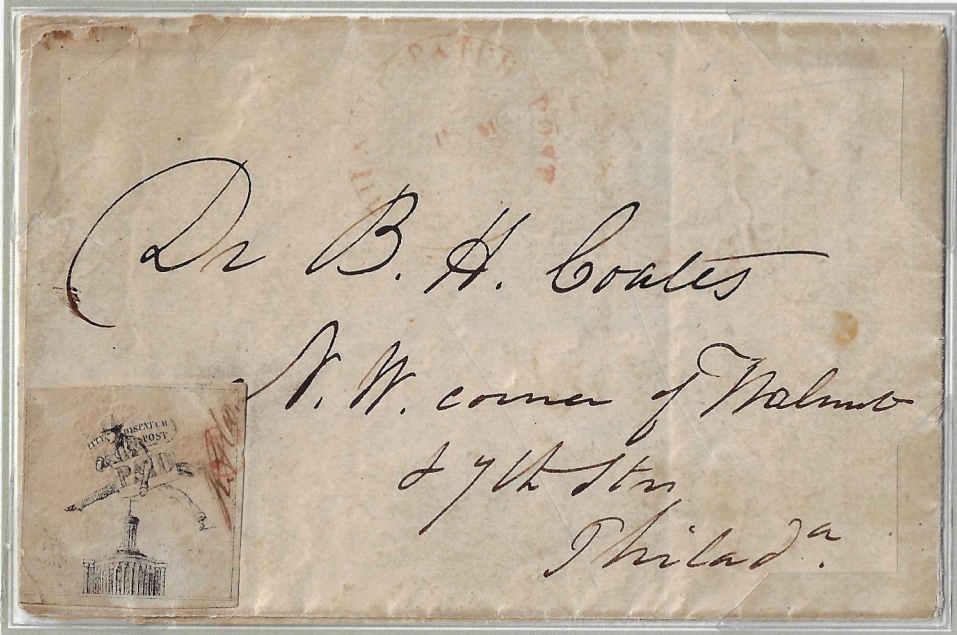 DISPATCH POST
Dr B. H. Coates
N. W. corner of Walnut
& 7th Strs
Philada.
CITY DISPATCH
POST
PAID